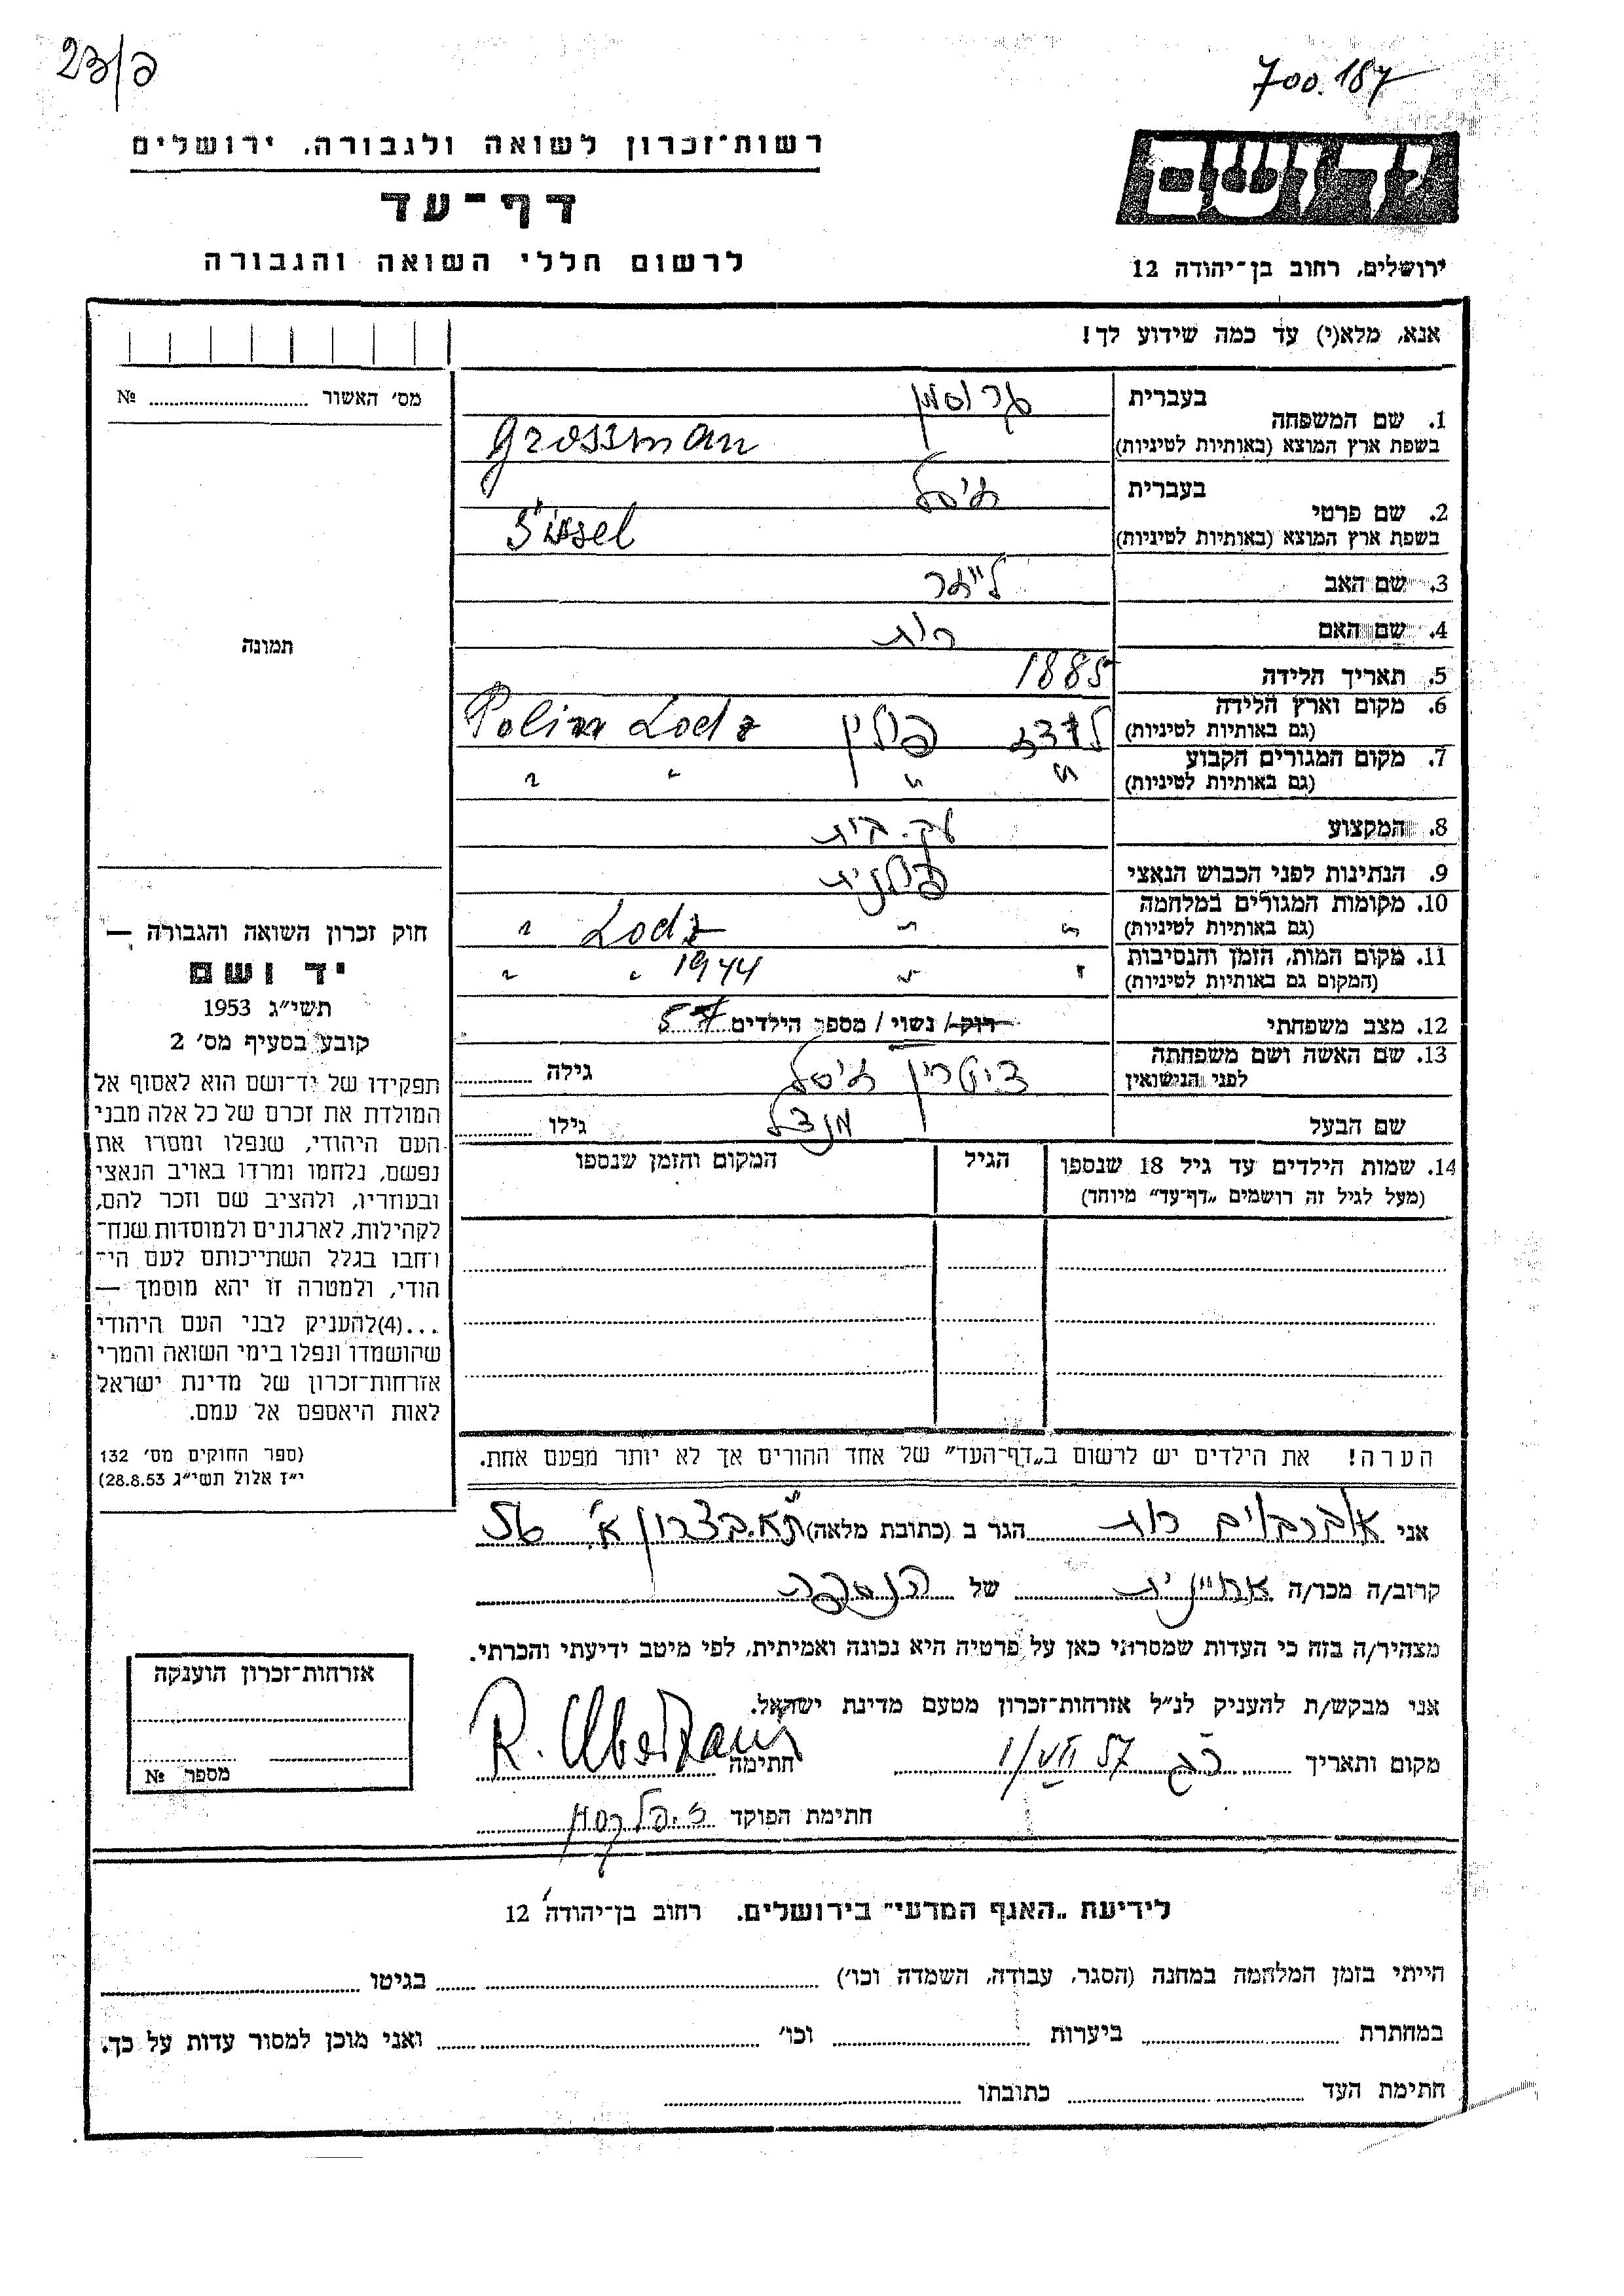 23/כ
700.187
רשות־זכרון לשואה ולגבורה, ירושלים
דף־עד
לרשום חללי השואה והגבורה
יד ושם
ירושלים, רחוב בן־יהודה 12
אנא, מלא(י) עד כמה שידוע לך!
מס׳ האשור № 
1. שם המשפחה
בעברית גרוסמן
בשפת ארץ המוצא (באותיות לטיניות) Grossman
2. שם פרטי
בעברית זיסל
בשפת ארץ המוצא (באותיות לטיניות) Sissel
3. שם האב לייזר
4. שם האם רות
5. תאריך הלידה 1885
6. מקום וארץ הלידה לודז פולין Lodz
(גם באותיות לטיניות)
7. מקום המגורים הקבוע " " " "
(גם באותיות לטיניות)
8. המקצוע עק. בית
9. הנתינות לפני הכבוש הנאצי פולנית
10. מקומות המגורים במלחמה " " Lodz "
(גם באותיות לטיניות)
11. מקום המות, הזמן והנסיבות " " 1944 " "
(המקום גם באותיות לטיניות)
12. מצב משפחתי רווק / נשוי / מספר הילדים 5
13. שם האשה ושם משפחתה זיסל גילה
לפני הנישואין
שם הבעל מנדל גילו
14. שמות הילדים עד גיל 18 שנספו הגיל המקום והזמן שנספו
(מעל לגיל זה רושמים „דף־עד” מיוחד)
הערה! את הילדים יש לרשום ב„דף־העד” של אחד ההורים אך לא יותר מפעם אחת.
תמונה
חוק זכרון השואה והגבורה —
יד ושם
תשי״ג 1953
קובע בסעיף מס׳ 2
תפקידו של יד־ושם הוא לאסוף אל
המולדת את זכרם של כל אלה מבני
העם היהודי, שנפלו ומסרו את
נפשם, נלחמו ומרדו באויב הנאצי
ובעוזריו, ולהציב שם וזכר להם,
לקהילות, לארגונים ולמוסדות שנח־
רבו בגלל השתייכותם לעם הי־
הודי, ולמטרה זו יהא מוסמך —
...(4)להעניק לבני העם היהודי
שהושמדו ונפלו בימי השואה והמרי
אזרחות־זכרון של מדינת ישראל
לאות היאספם אל עמם.
(ספר החוקים מס׳ 132
י״ז אלול תשי״ג 28.8.53)
אני רות הגר ב (כתובת מלאה) ת״א. בצרון א׳ 56
קרוב/ה מכר/ה אחיינית של הנספה
מצהיר/ה בזה כי העדות שמסרתי כאן על פרטיה היא נכונה ואמיתית, לפי מיטב ידיעתי והכרתי.
אני מבקש/ת להעניק לנ״ל אזרחות־זכרון מטעם מדינת ישראל.
מקום ותאריך 1/VII 57 חתימה
חתימת הפוקד
אזרחות־זכרון הוענקה
מספר №
לידיעת „האגף המדעי” בירושלים. רחוב בן־יהודה 12
הייתי בזמן המלחמה במחנה (הסגר, עבודה, השמדה וכו׳) בגיטו
במחתרת ביערות וכו׳ ואני מוכן למסור עדות על כך.
חתימת העד כתובתו